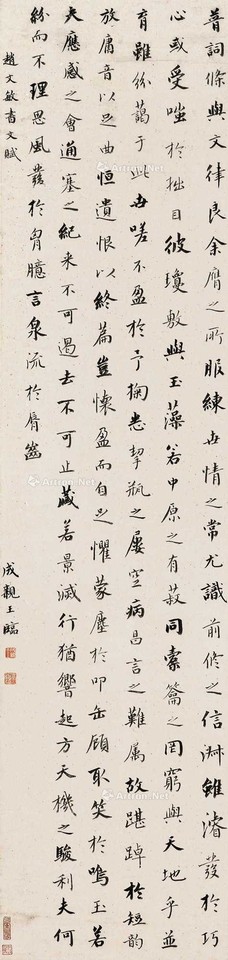 普詞條與文律良余膺之所服練世情之常尤識前修之信淋雖濬發於巧
心或受嗤於拙目彼瓊敷與玉藻若中原之有菽同橐籥之罔窮與天地乎並
育雖紛藹于此世嗟不盈於予掬患挈瓶之屢空病昌言之難属故踸踔於短韵
放庸音以足曲恒遺恨以終篇豈懷盈而自足懼蒙塵於叩缶顧取笑於鳴玉若
夫應感之會通塞之紀来不可遏去不可止藏若景滅行猶響起方天機之駿利夫何
紛而不理思風發於胷臆言泉流於脣齒
趙文敏書文賦
成親王臨